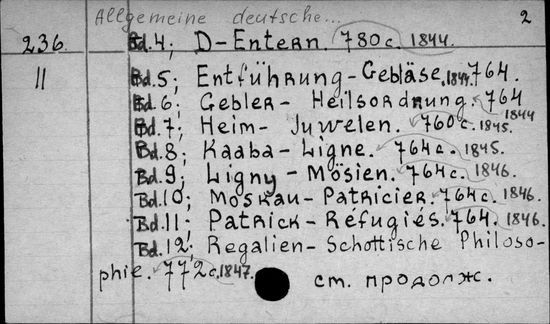 Allgemeine deutsche... 2
236. Bd.4; D-Entern. 780c. 1844.
II Bd.5; Entführung-Gebläse. 1844. 764.
Bd.6; Gebler- Heilsordnung. 764
1844
Bd.7; Heim- Juwelen. 760c. 1845.
Bd.8; Kaaba-Ligne. 764c. 1845.
Bd.9; Ligny-Mösien. 764c. 1846.
Bd.10; Moskau-Patricier. 764c. 1846.
Bd.11; Patrick-Réfugiés. 764. 1846.
Bd.12; Regalien-Schottische Philoso-
phie. 772c. 1847. см. продолж.